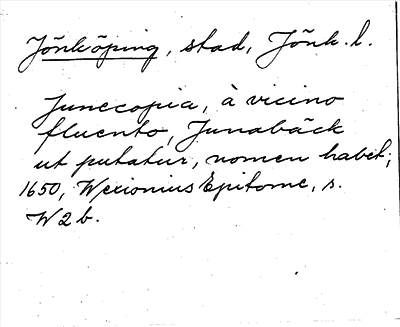 Jönköping, stad, Jönk. l.
Junecopia, à vicino
fluento, Junabäck
ut putatur, nomen habet;
1650, Wexionius Epitome, s.
W2b.